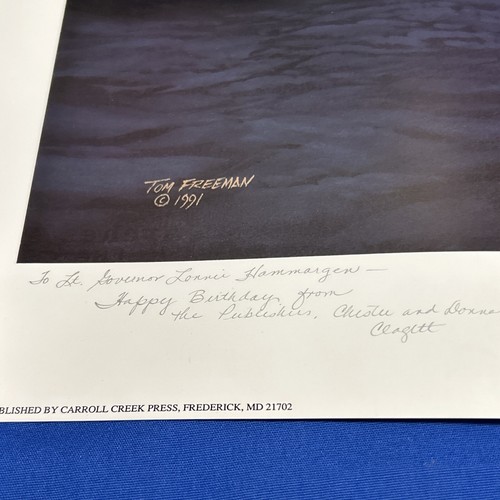 TOM FREEMAN
© 1991
To Lt. Governor Lonnie Hammargen —
Happy Birthday, from
the Publishers, Chester and Donna
Clagett
BLISHED BY CARROLL CREEK PRESS, FREDERICK, MD 21702